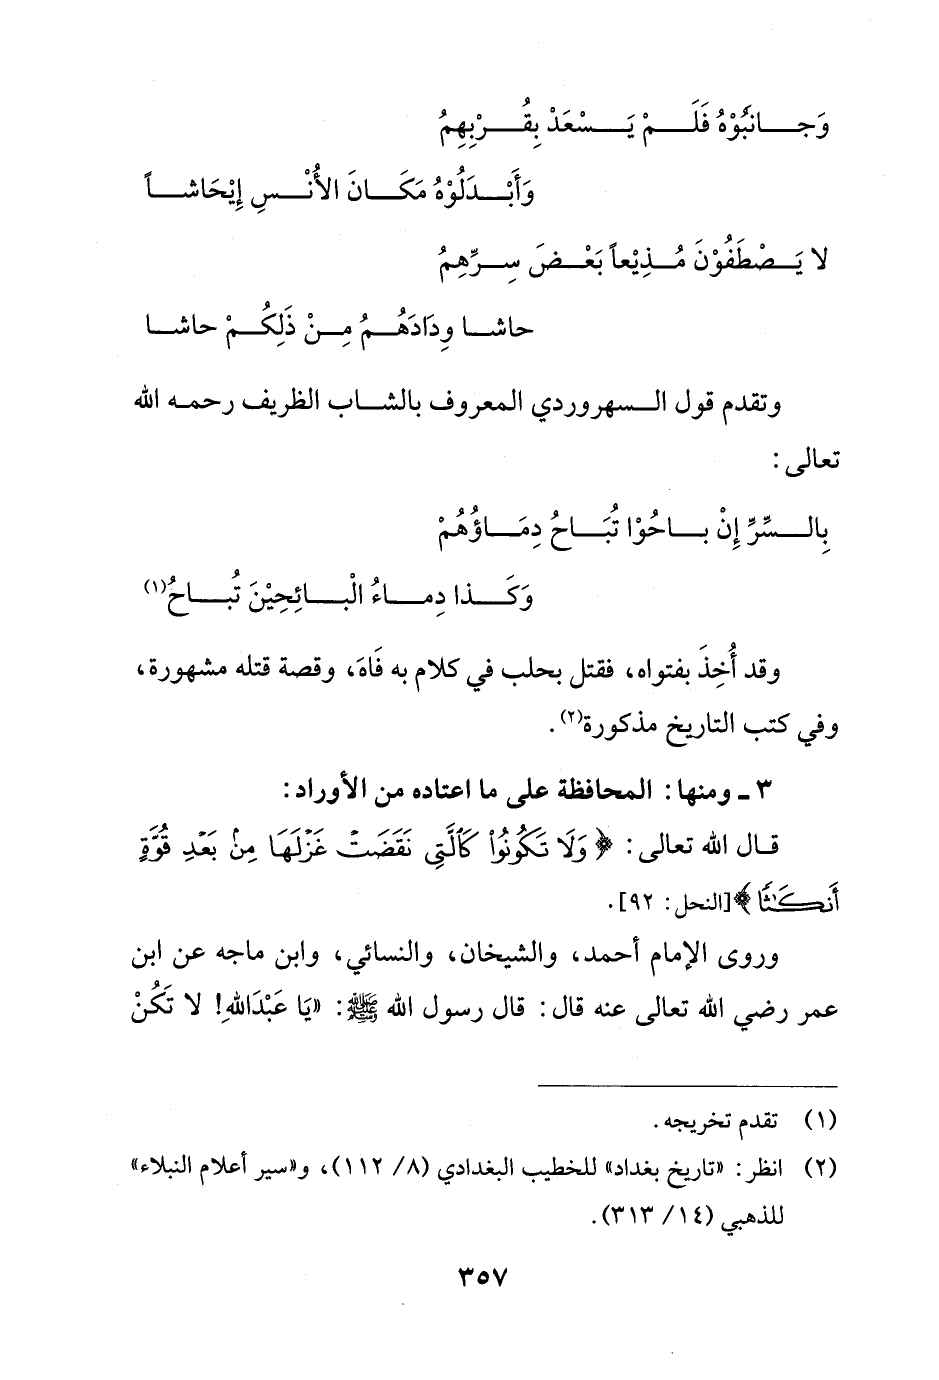 وَجَانَبُوْهُ فَلَمْ يَسْعَدْ بِقُرْبِهِمُ
وَأَبْدَلُوْهُ مَكَانَ الأُنْسِ إِيْحَاشاً
لا يَصْطَفُوْنَ مُذِيْعاً بَعْضَ سِرِّهِمُ
حاشا وِدَادَهُمُ مِنْ ذَلِكُمْ حاشا
وتقدم قول السهروردي المعروف بالشاب الظريف رحمه الله
تعالى:
بِالسِّرِّ إِنْ بَاحُوْا تُبَاحُ دِمَاؤُهُمْ
وَكَذا دِماءُ الْبائِحِيْنَ تُباحُ(١)
وقد أُخِذَ بفتواه، فقتل بحلب في كلام به فَاهَ، وقصة قتله مشهورة،
وفي كتب التاريخ مذكورة(٢).
٣ ـ ومنها: المحافظة على ما اعتاده من الأوراد:
قال الله تعالى: ﴿وَلَا تَكُونُوا۟ كَٱلَّتِى نَقَضَتْ غَزْلَهَا مِنۢ بَعْدِ قُوَّةٍ
أَنكَـٰثًا﴾[النحل: ٩٢].
وروى الإمام أحمد، والشيخان، والنسائي، وابن ماجه عن ابن
عمر رضي الله تعالى عنه قال: قال رسول الله ﷺ: «يَا عَبْدَاللهِ! لا تَكُنْ
(١) تقدم تخريجه.
(٢) انظر: «تاريخ بغداد» للخطيب البغدادي (٨/ ١١٢)، و«سير أعلام النبلاء»
للذهبي (١٤/ ٣١٣).
٣٥٧